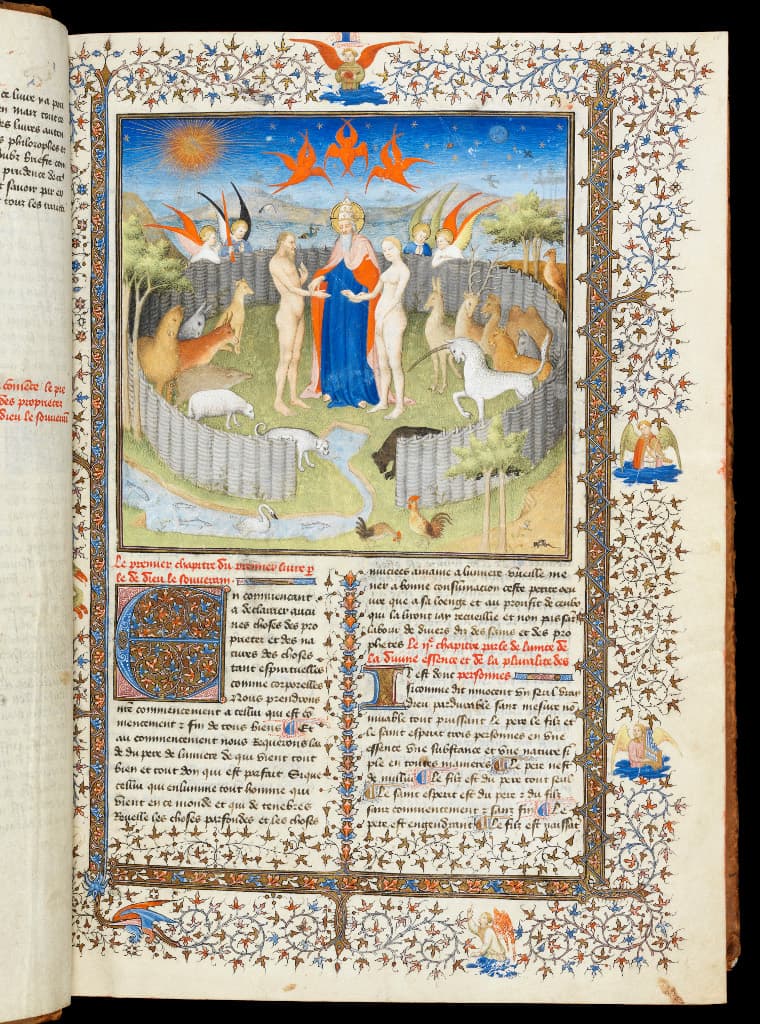 ce livre na pou
en mais toute
des livres auten
s philosophes et
prudence de cel
t savoir par ey
comēce le pre
des proprietes
dieu le souverain
Le premier chapitre du premier livre p̄
le de dieu le souverain.
En commencant
a declairer aucu
nes choses des pro
prietez et des na
tures des choses
tant espirituelles
comme corporelles
Nous prendrons
nre commencement a cellui qui est co
mencement z fin de tous biens Et
au commencement nous requerons lai
de du pere de lumiere de qui vient tout
bien et tout don qui est parfait Si que
cellui qui enlumine tout homme qui
vient en ce monde et qui de tenebres
Reveille les choses parfondes et les choses
muciees amaine a lumiere vueille me
ner a bonne consumacion ceste petite oeu
vre que a sa loenge et au prouffit de ceulx
qui la liront iay recueillie et non pas sās
labour de divers diz des sains et des pro
phetes Le ijᵉ chapitre parle de lunite de
la divine essence et de la pluralite des
personnes
Il est donc
si comme dit innocent vn seul vray
dieu pardurable sans mesure nō
muable tout puissant le pere le filz et
le saint esperit trois personnes en vne
essence vne substance et vne nature si
ple en toutes manieres Le pere nest
de nullui Le filz est du pere tout seul
Le saint esperit est du pere et du filz
sans commencement z sans fin Le
pere est engendrant Le filz est naissāt